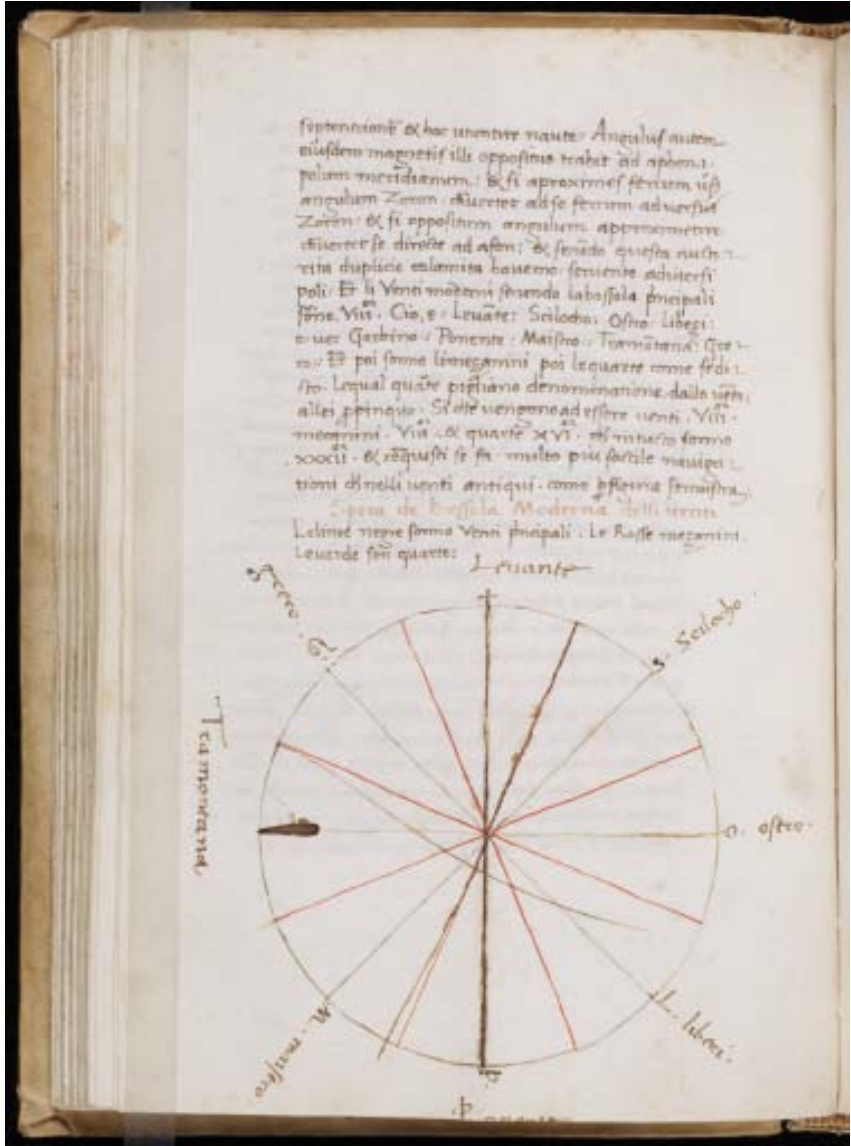 septentrionē & hoc utuntur naute. Angulus autem
eiusdem magnetis illi oppositus trahit ad aphon .i.
polum meridianum: Et si aproximes ferrum ūs̄
angulum Zoron. cōuertet ad se ferrum aduersus
Zoron: & si oppositum angulum approximetur
cōuertet se directe ad afon: & secūdo questa
duplicie calamita hauemo seruente aduersi
poli. Et li Venti moderni secundo la bossola pncipali
sōno. Viii. Cio, e. Leuāte: Scilocho: Ostro: libeci:
o uer Garbino: Ponente: Maistro: Tramūtana: Gre-
co: Et poi sonno li meganini poi le quarte come se di-
sto. Le qual quāte pigliano denominatione dallo uēto
allei ppinquo: Si che uengono ad essere uenti. Viii.
meganini. Viii. & quarte xvi. ch in tucto sonno
xxxii. & cō questi se fa multo piu facile nauiga-
tioni ch nelli uenti antiqui. come
Spera de Bossola Moderna delli uenti
Le linee negre sonno Venti pncipali. Le Rosse meganini.
Le uerde sōn quarte:
Leuante
greco. G.
S. Scilocho
Tramontana
O. ostro.
M. maistro
L. libeci.
P